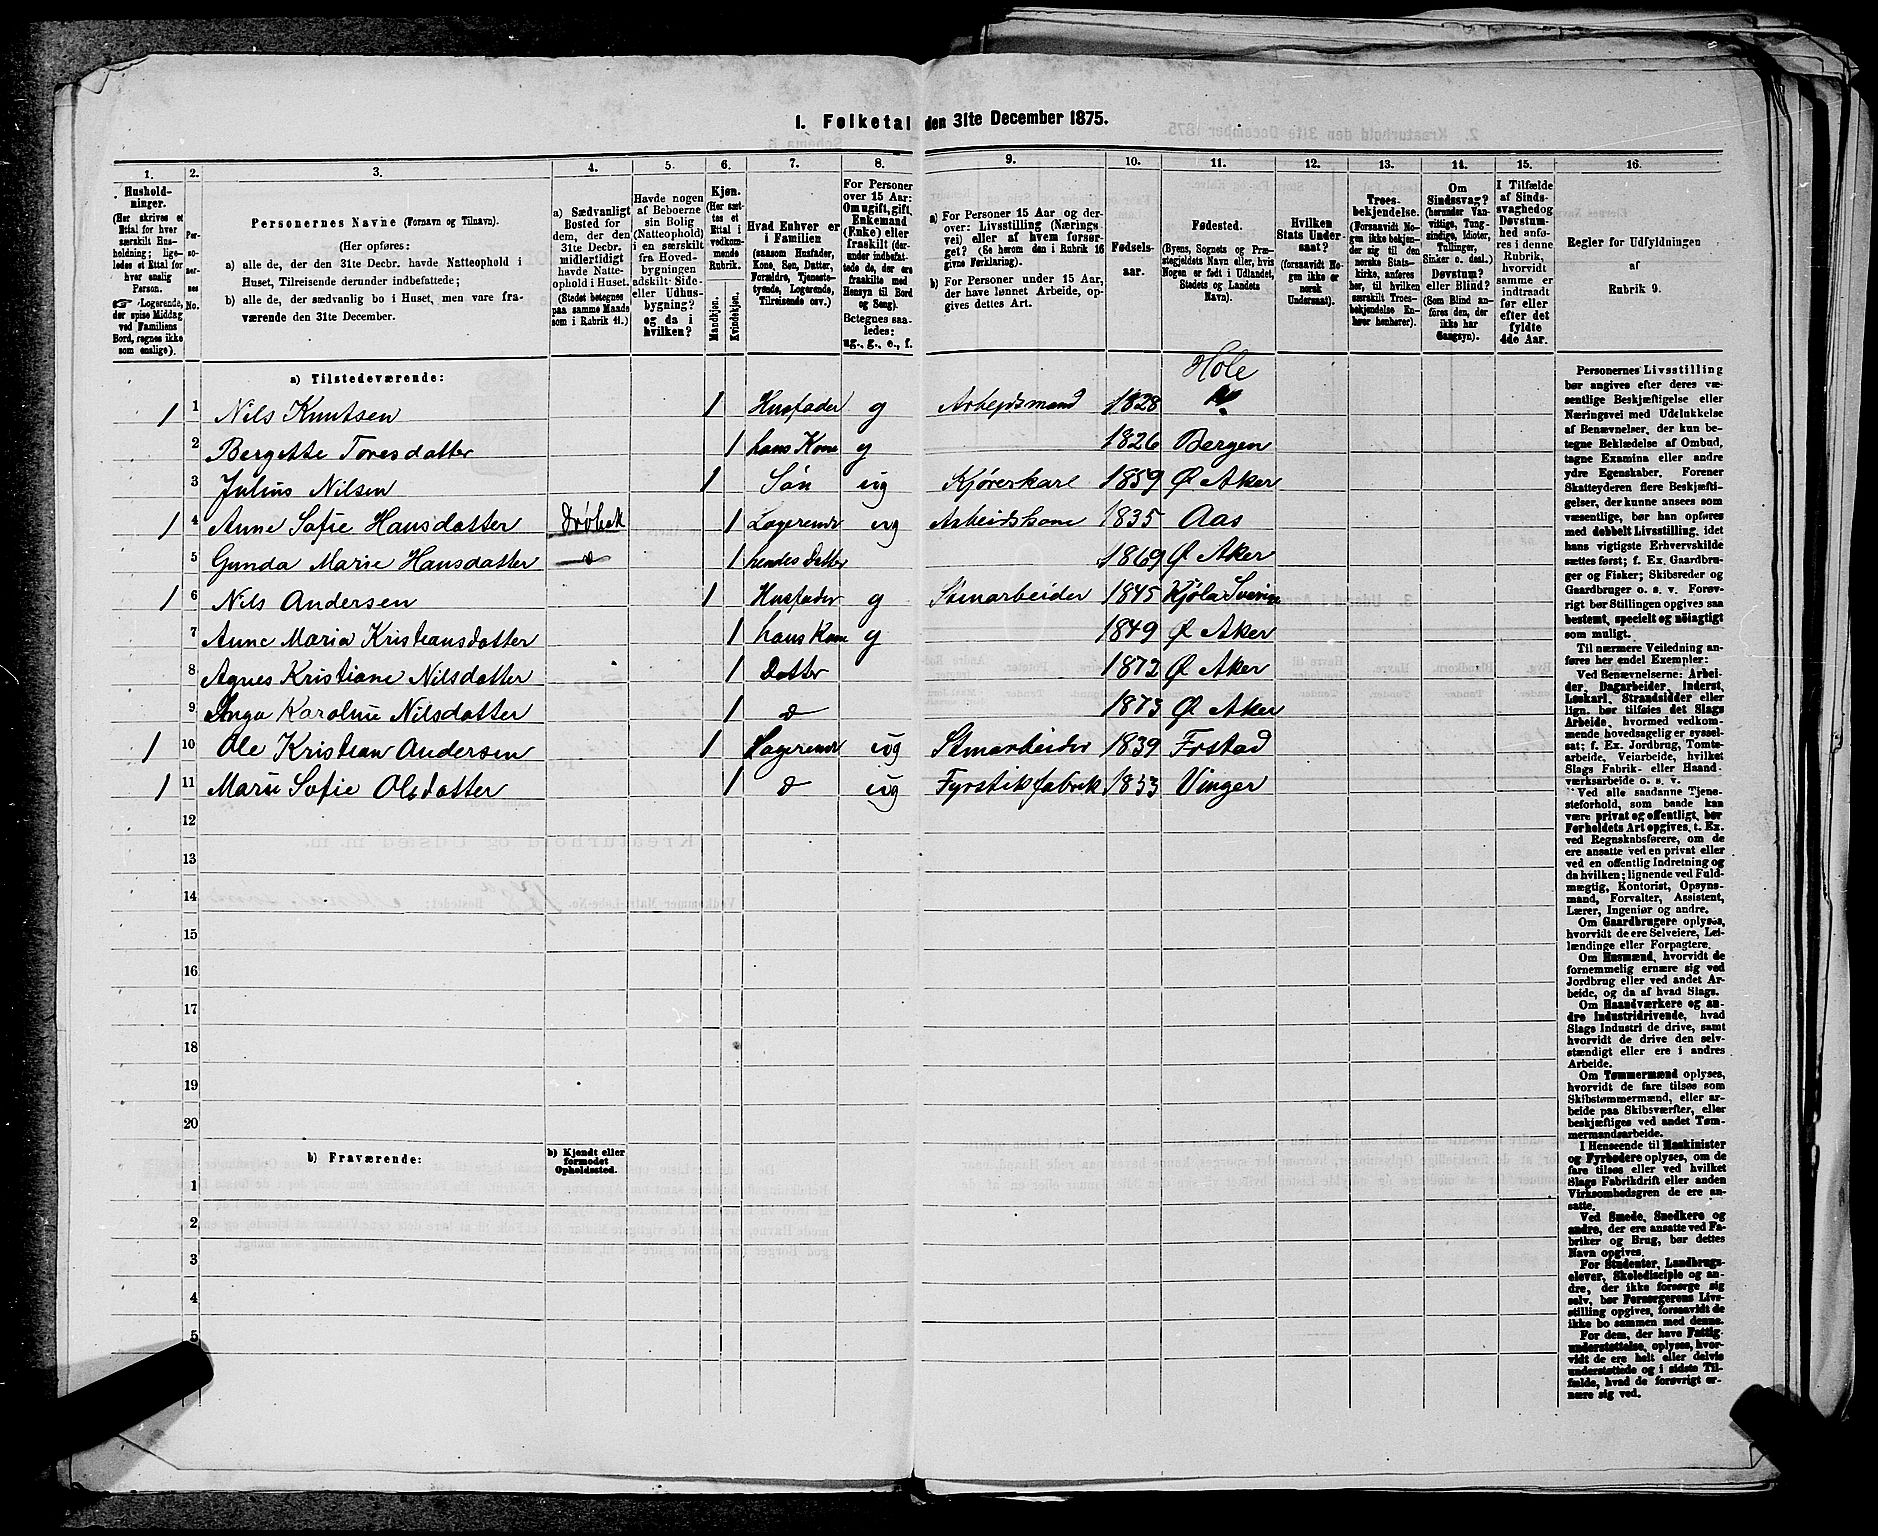 I. Folketal den 31te December 1875.
1. 2. 3. 4. 5. 6. 7. 8. 9. 10. 11. 12. 13. 14. 15. 16.
Hushold-
ninger.
(Her skrives et
Ettal for hver
særskilt Hus-
holdning; lige-
ledes et Ettal for
hver enslig
Person.
☞ Logerende,
der spise Middag
ved Familiens
Bord, regnes ikke
som enslige).
Per-
so-
ner-
nes
No.
Personernes Navne (Fornavn og Tilnavn).
(Her opføres:
a) alle de, der den 31te Decbr. havde Natteophold i
Huset, Tilreisende derunder indbefattede;
b) alle de, der sædvanlig bo i Huset, men vare fra-
værende den 31te December.
a) Sædvanligt
Bosted for
dem, der den
31te Decbr.
midlertidigt
havde Natte-
ophold i Huset.
(Stedet betegnes
paa samme Maade
som i Rubrik 11.)
Havde nogen
af Beboerne
sin Bolig
(Natteophold)
i en særskilt
fra Hoved-
bygningen
adskilt Side-
eller Udhus-
bygning?
og da i
hvilken?
Kjøn.
(Her sæt-
tes et
Ettal i
vedkom-
mende
Rubrik.
Mandkjøn.
Kvindekjøn.
Hvad Enhver er
i Familien
(saasom Husfader,
Kone, Søn, Datter,
Forældre, Tjeneste-
tyende, Logerende,
Tilreisende osv.)
For Personer
over 15 Aar:
Om ugift, gift,
Enkemand
(Enke) eller
fraskilt (der-
under indbefat-
tede de, der ere
fraskilte med
Hensyn til Bord
og Seng).
Betegnes saa-
ledes:
ug., g., e., f.
a) For Personer 15 Aar og der-
over: Livsstilling (Nærings-
vei) eller af hvem forsør-
get? (Se herom den i Rubrik 16
givne Forklaring).
b) For Personer under 15 Aar,
der have lønnet Arbeide, op-
gives dettes Art.
Fødsels-
aar.
Fødested.
(Byens, Sognets og Præ-
stegjeldets Navn eller, hvis
Nogen er født i Udlandet,
Stedets og Landets
Navn).
Hvilken
Stats Under-
saat?
(forsaavidt No-
gen ikke er
norsk
Undersaat).
Troes-
bekjendelse.
(Forsaavidt No-
gen ikke bekjen-
der sig til den
norske Stats-
kirke, anføres
her, til hvilken
særskilt Troes-
bekjendelse En-
hver henhører).
Om
Sindssvag?
(herunder Van-
vittige, Tung-
sindige, Idioter,
Tullinger,
Sinker o. desl.)
Døvstum?
eller Blind?
(Som Blind an-
føres den, der
ikke har
Gangsyn).
I Tilfælde
af Sinds-
svaghed og
Døvstum-
hed anføres
i denne
Rubrik,
hvorvidt
samme er
indtraadt
før eller
efter det
fyldte
4de Aar.
Regler for Udfyldningen
af
Rubrik 9.
a) Tilstedeværende:
Hole
1 1 Nils Knutsen 1 Husfader g Arbejdsmand 1828
2 Bergette Toresdatter 1 hans Kone g 1826 Bergen
3 Julius Nilsen 1 Søn ug Kjørerkarl 1859 Ø Aker
1 4 Anne Sofie Hansdatter Drøbak 1 Logerende ug Arbeidskone 1835 Aas
5 Gunda Marie Hansdatter d 1 hendes Datter 1869 Ø Aker
1 6 Nils Andersen 1 Husfader g Stenarbeider 1845 Kjöla Sverin
7 Anne Maria Kristiansdatter 1 hans Kone g 1849 Ø Aker
8 Agnes Kristiane Nilsdatter 1 Datter 1872 Ø Aker
9 Inga Karoline Nilsdatter 1 d 1873 Ø Aker
1 10 Ole Kristian Andersen 1 Logerende ug Stenarbeider 1839 Frstad
1 11 Marie Sofie Olsdatter 1 d ug Fyrstikfabrik 1853 Vinger
12
13
14
15
16
17
18
19
20
b) Fraværende:
b) Kjendt eller
formodet
Opholdssted.
1
2
3
4
5
Personernes Livsstilling
bør angives efter deres væ-
sentlige Beskjæftigelse eller
Næringsvei med Udelukkelse
af Benævnelser, der kun be-
tegne Beklædelse af Ombud,
tagne Examina eller andre
ydre Egenskaber. Forener
Skatteyderen flere Beskjæfti-
gelser, der kunne ansees som
væsentlige, bør han opføres
med dobbelt Livsstilling, idet
hans vigtigste Erhvervskilde
sættes først; f. Ex. Gaardbru-
ger og Fisker; Skibsreder og
Gaardbruger o. s. v. Forøv-
rigt bør Stillingen opgives saa
bestemt, specielt og nöiagtigt
som muligt.
Til nærmere Veiledning an-
føres her endel Exempler:
Ved Benævnelserne: Arbei-
der, Dagarbeider, Inderst,
Løskarl, Strandsidder eller
lign. bør tilføies det Slags
Arbeide, hvormed vedkom-
mende hovedsagelig er syssel-
sat; f. Ex. Jordbrug, Tomte-
arbeide, Veiarbeide, hvilket
Slags Fabrik- eller Haand-
værksarbeide o. s. v.
Ved alle saadanne Tjene-
steforhold, som baade kan
være privat og offentligt, bør
Forholdets Art opgives, t. Ex.
ved Regnskabsførere, om de
ere ansatte ved en privat eller
ved en offentlig Indretning og
da hvilken; lignende ved Fuld-
mægtig, Kontorist, Opsyns-
mand, Forvalter, Assistent,
Lærer, Ingeniør og andre.
Om Gaardbrugere oplyses,
hvorvidt de ere Selveiere, Lei-
lændinge eller Forpagtere.
Om Husmænd, hvorvidt de
fornemmelig ernære sig ved
Jordbrug eller ved andet Ar-
beide, og da af hvad Slags.
Om Haandværkere og an-
dre Industridrivende, hvad
Slags Industri de drive, samt
hvorvidt de drive den selv-
stændigt eller ere i andres
Arbeide.
Om Tømmermænd oplyses,
hvorvidt de fare tilsøs som
Skibstømmermænd, eller ar-
beide paa Skibsværfter, eller
beskjæftiges ved andet Tøm-
mermandsarbeide.
I Henseende til Maskinister
og Fyrbødere oplyses, om de
fare tilsøs eller ved hvilket
Slags Fabrikdrift eller anden
Virksomhedsgren de ere an-
satte.
Ved Smede, Snedkere og
andre, der ere ansatte ved Fa-
briker og Brug, bør dettes
Navn opgives.
For Studenter, Landbrugs-
elever, Skoledisciple og an-
dre, der ikke forsørge sig
selv, bør Forsørgerens Livs-
stilling opgives, forsaavidt de
ikke bo sammen med denne.
For dem, der have Fattig-
understøttelse, oplyses, hvor-
vidt de ere helt eller delvis
understøttede og i sidste Til-
fælde, hvad de forøvrigt er-
nære sig ved.